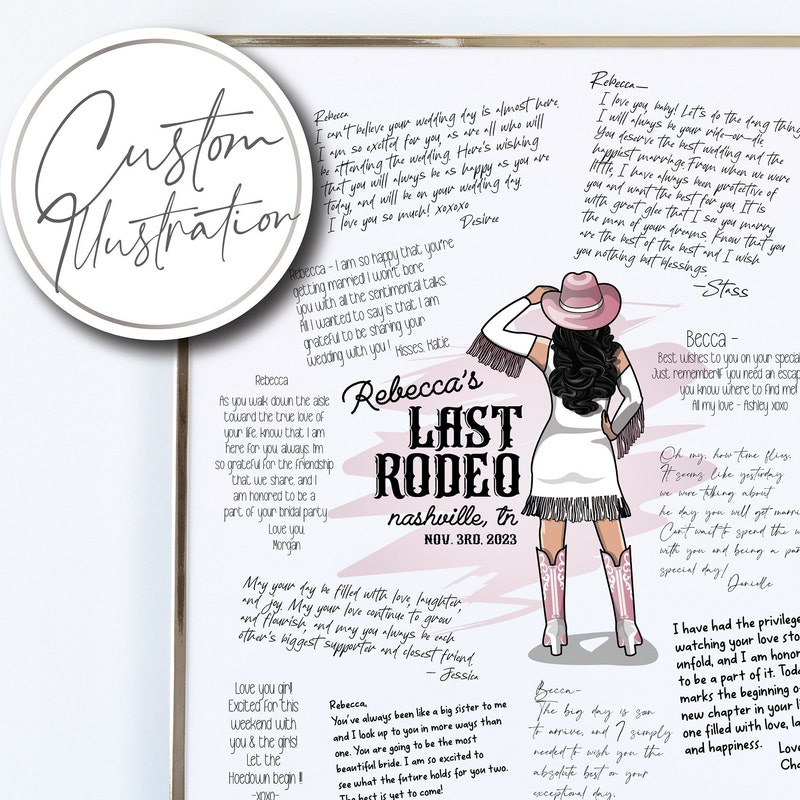 Custom
Illustration
Rebecca
I can't believe your wedding day is almost here.
I am so excited for you, as are all who will
be attending the wedding. Here's wishing
that you will always be as happy as you are
today, and will be on your wedding day.
I love you so much! xoxoxo
Desiree
Rebecca—
I love you, baby! Let's do the dang thing
I will always be your ride-or-die.
You deserve the best wedding and the
happiest marriage. From when we were
little, I have always been protective of
you and want the best for you. It is
with great glee that I see you marry
the man of your dreams. Know that you
are the best of the best and I wish
you nothing but blessings.
—Stass
Rebecca - I am so happy that you're
getting married! I won't bore
you with all the sentimental talks.
All I wanted to say is that I am
grateful to be sharing your
wedding with you! Kisses, Katie
Becca -
Best wishes to you on your special
Just remember!If you need an escap
you know where to find me!
All my love - Ashley xoxo
Rebecca
As you walk down the aisle
toward the true love of
your life, know that I am
here for you, always. I'm
so grateful for the friendship
that we share, and I
am honored to be a
part of your bridal party.
Love you,
Morgan
Rebecca's
LAST
RODEO
nashville, tn
NOV. 3RD, 2023
Oh my, how time flies.
It seems like yesterday
we were talking about
he day you will get marri
Can't wait to spend the w
with you and being a par
special day!
Danielle
May your day be filled with love, laughter,
and joy. May your love continue to grow
and flourish, and may you always be each
other's biggest supporter and closest friend.
— Jessica
I have had the privilege
watching your love sto
unfold, and I am honor
to be a part of it. Toda
marks the beginning o
new chapter in your li
one filled with love, la
and happiness.
Love
Cha
Love you girl!
Excited for this
weekend with
you & the girls!
Let the
Hoedown begin !!
-xoxo-
Rebecca,
You've always been like a big sister to me
and I look up to you in more ways than
one. You are going to be the most
beautiful bride. I am so excited to
see what the future holds for you two.
The best is yet to come!
Becca-
The big day is soon
to arrive, and I simply
needed to wish you the
absolute best on your
exceptional day.